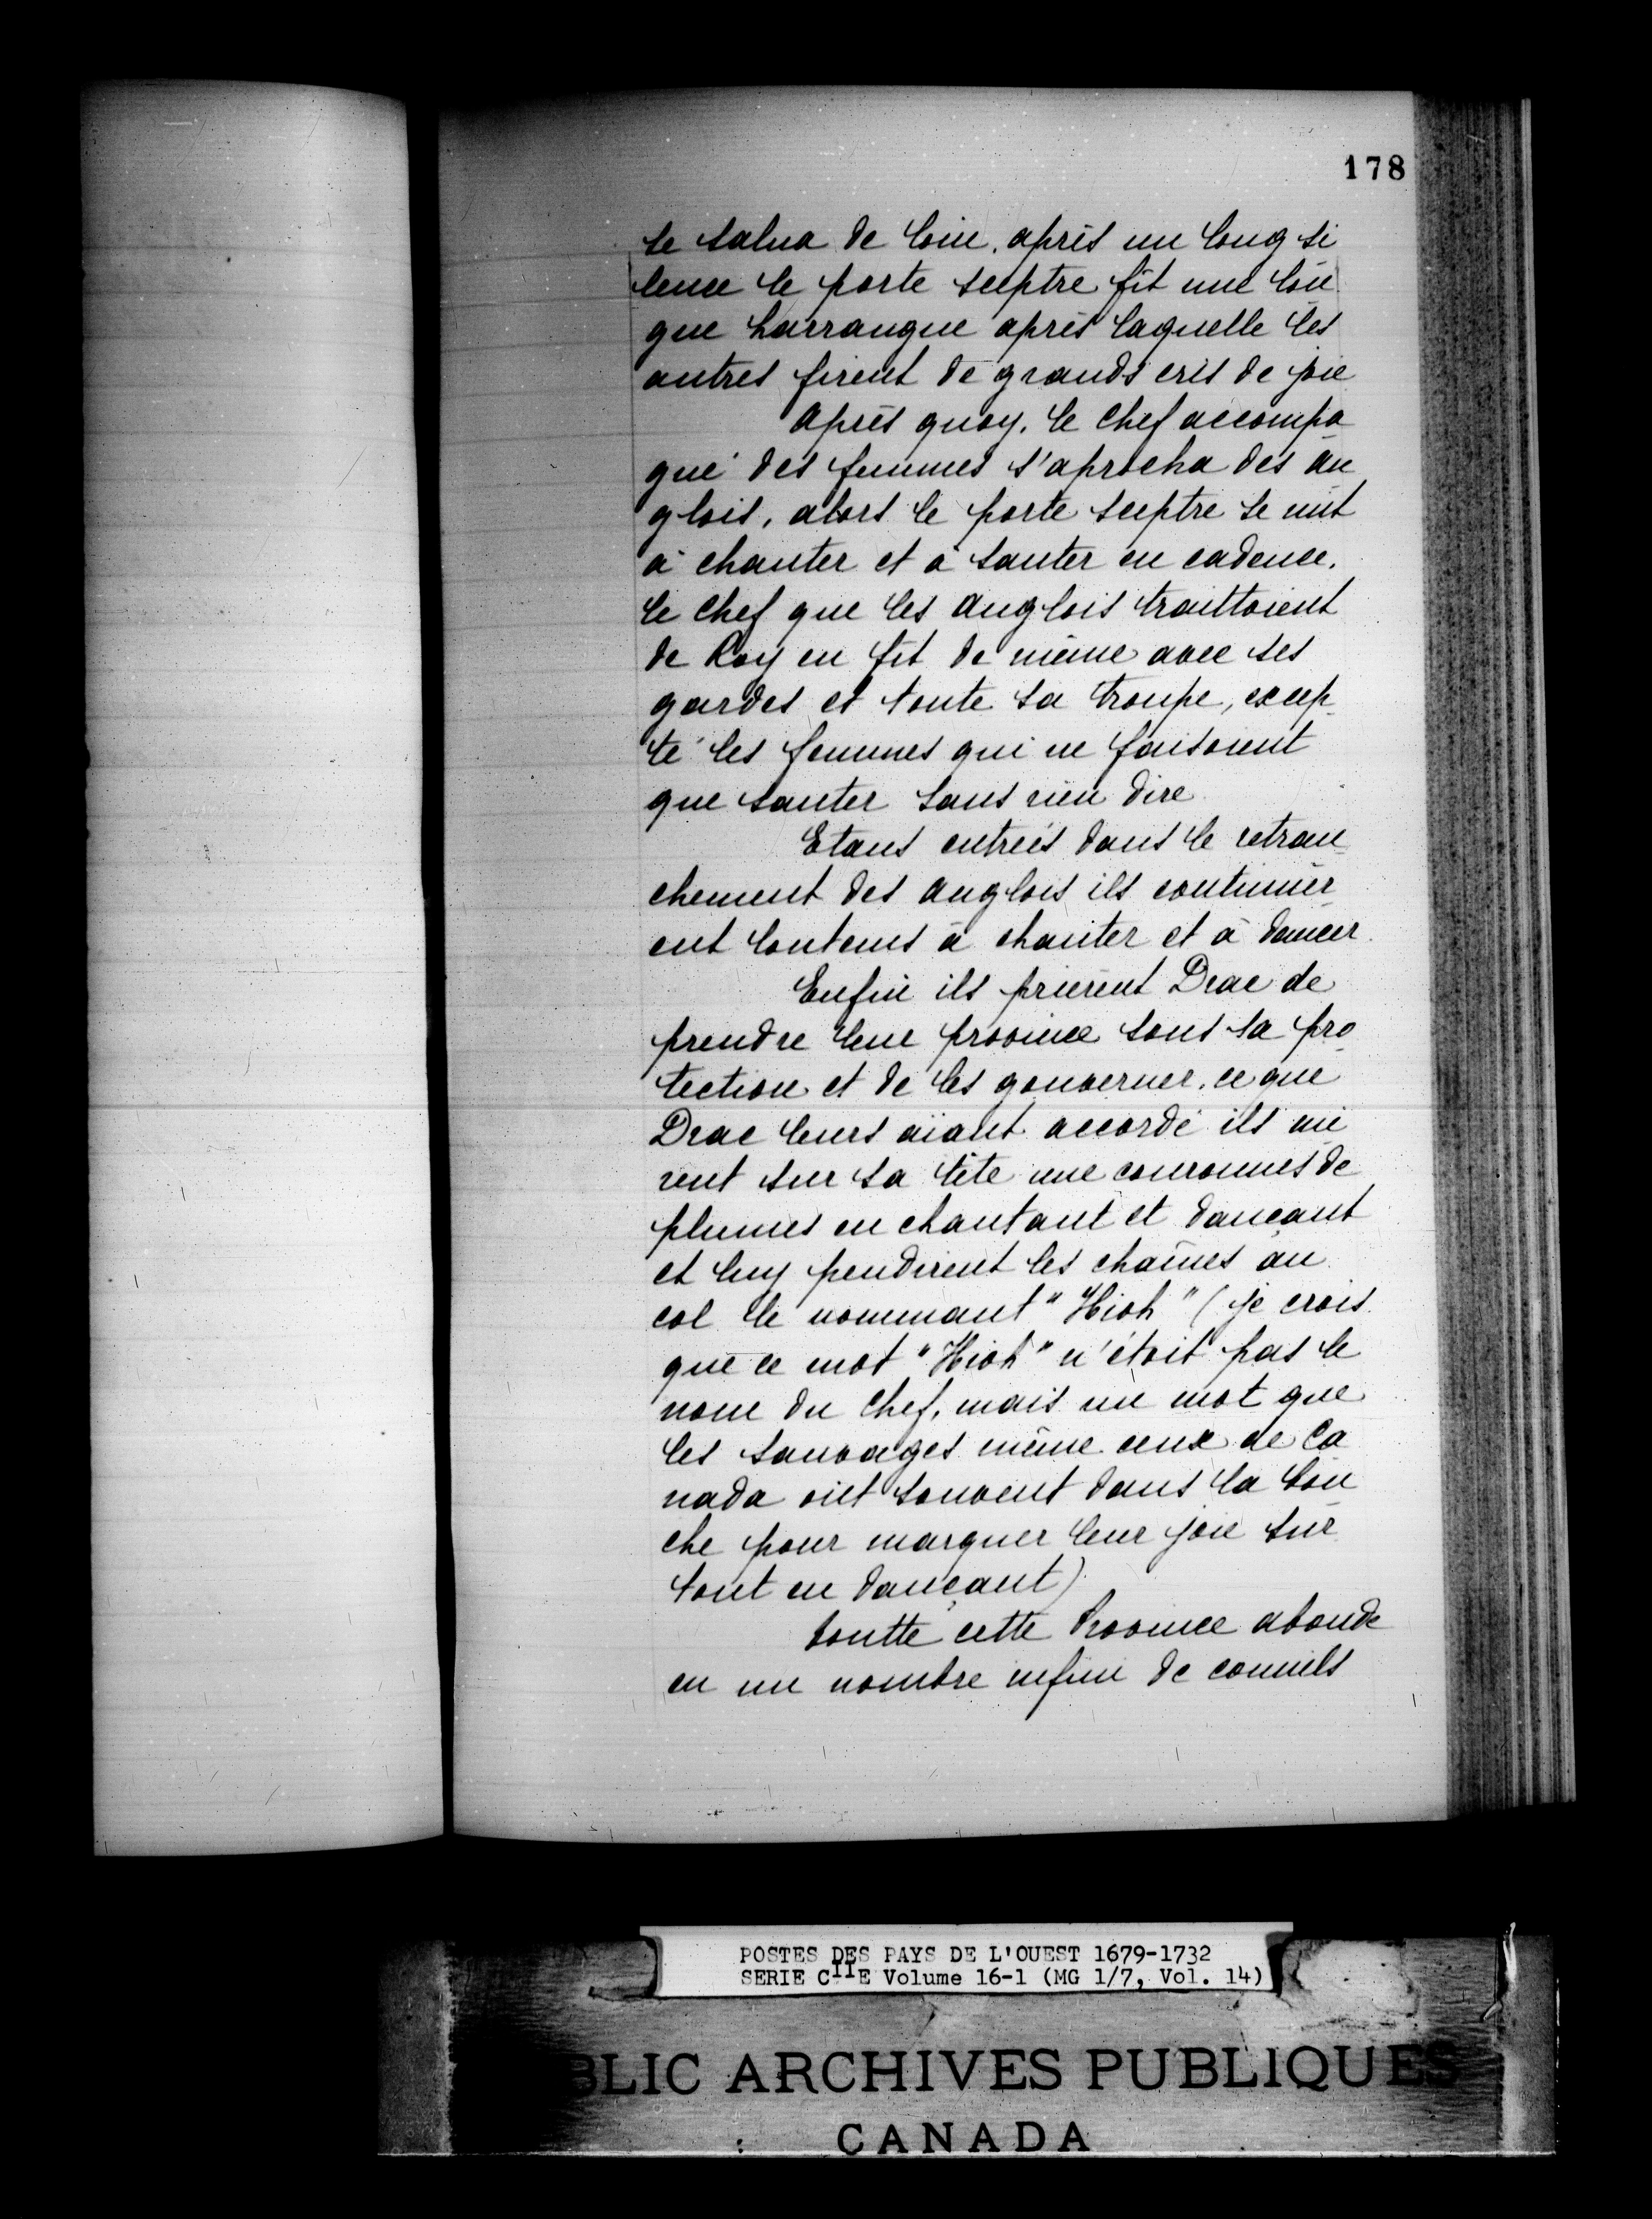 178
le salua de loin. après un long si
lence le porte sceptre fit une lon
gue harrangue après laquelle les
autres firent de grands cris de joie
Après quoy, le chef accompa
gné des femmes s'aprocha des An
glois, alors le porte sceptre se mit
à chanter et à sauter en cadence,
le chef que les Anglois traittoient
de Roy en fit de même avec ses
gardes et toute sa troupe, excep
té les femmes qui ne faisoient
que sauter sans rien dire
Etans entrés dans le retran
chement des Anglois ils continuèr
ent lontems à chanter et à dancer
Enfin ils prièrent Drac de
prendre leur province sous sa pro
tection et de les gouverner. ce que
Drac leurs aïant accordé ils mi
rent sur sa tête une couronnes de
plumes en chantant et dançant
et luy pendirent les chaînes au
col le nommant "Hioh" (je crois
que ce mot "Hioh" n'étoit pas le
nom du chef, mais un mot que
les sauvages même ceux de Ca
nada ont souvent dans la bou
che pour marquer leur joie sur
tout en dançant)
toutte cette Province abonde
en un nombre infini de connils
POSTES DES PAYS DE L'OUEST 1679-1732
SERIE CIIE Volume 16-1 (MG 1/7, Vol. 14)
BLIC ARCHIVES PUBLIQUES
CANADA